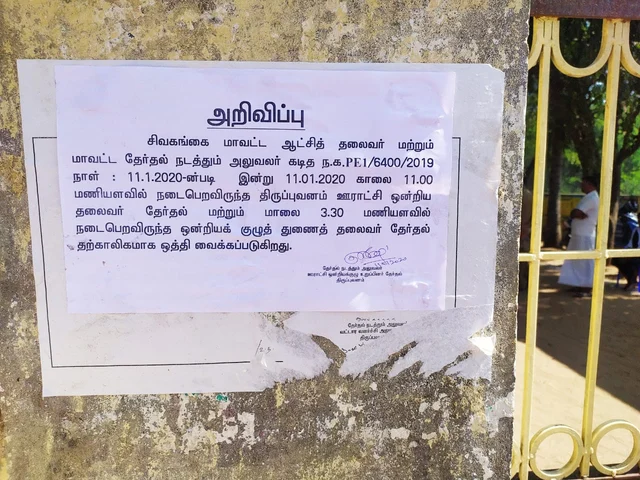 அறிவிப்பு
சிவகங்கை மாவட்ட ஆட்சித் தலைவர் மற்றும்
மாவட்ட தேர்தல் நடத்தும் அலுவலர் கடித ந.க.PE1/6400/2019
நாள் : 11.1.2020-ன்படி இன்று 11.01.2020 காலை 11.00
மணியளவில் நடைபெறவிருந்த திருப்புவனம் ஊராட்சி ஒன்றிய
தலைவர் தேர்தல் மற்றும் மாலை 3.30 மணியளவில்
நடைபெறவிருந்த ஒன்றியக் குழுத் துணைத் தலைவர் தேர்தல்
தற்காலிகமாக ஒத்தி வைக்கப்படுகிறது.
தேர்தல் நடத்தும் அலுவலர்
ஊராட்சி ஒன்றியக்குழு உறுப்பினர் தேர்தல்
திருப்புவனம்
தேர்தல் நடத்தும் அலுவ
வட்டார வளர்ச்சி அலு
திருப்புவ